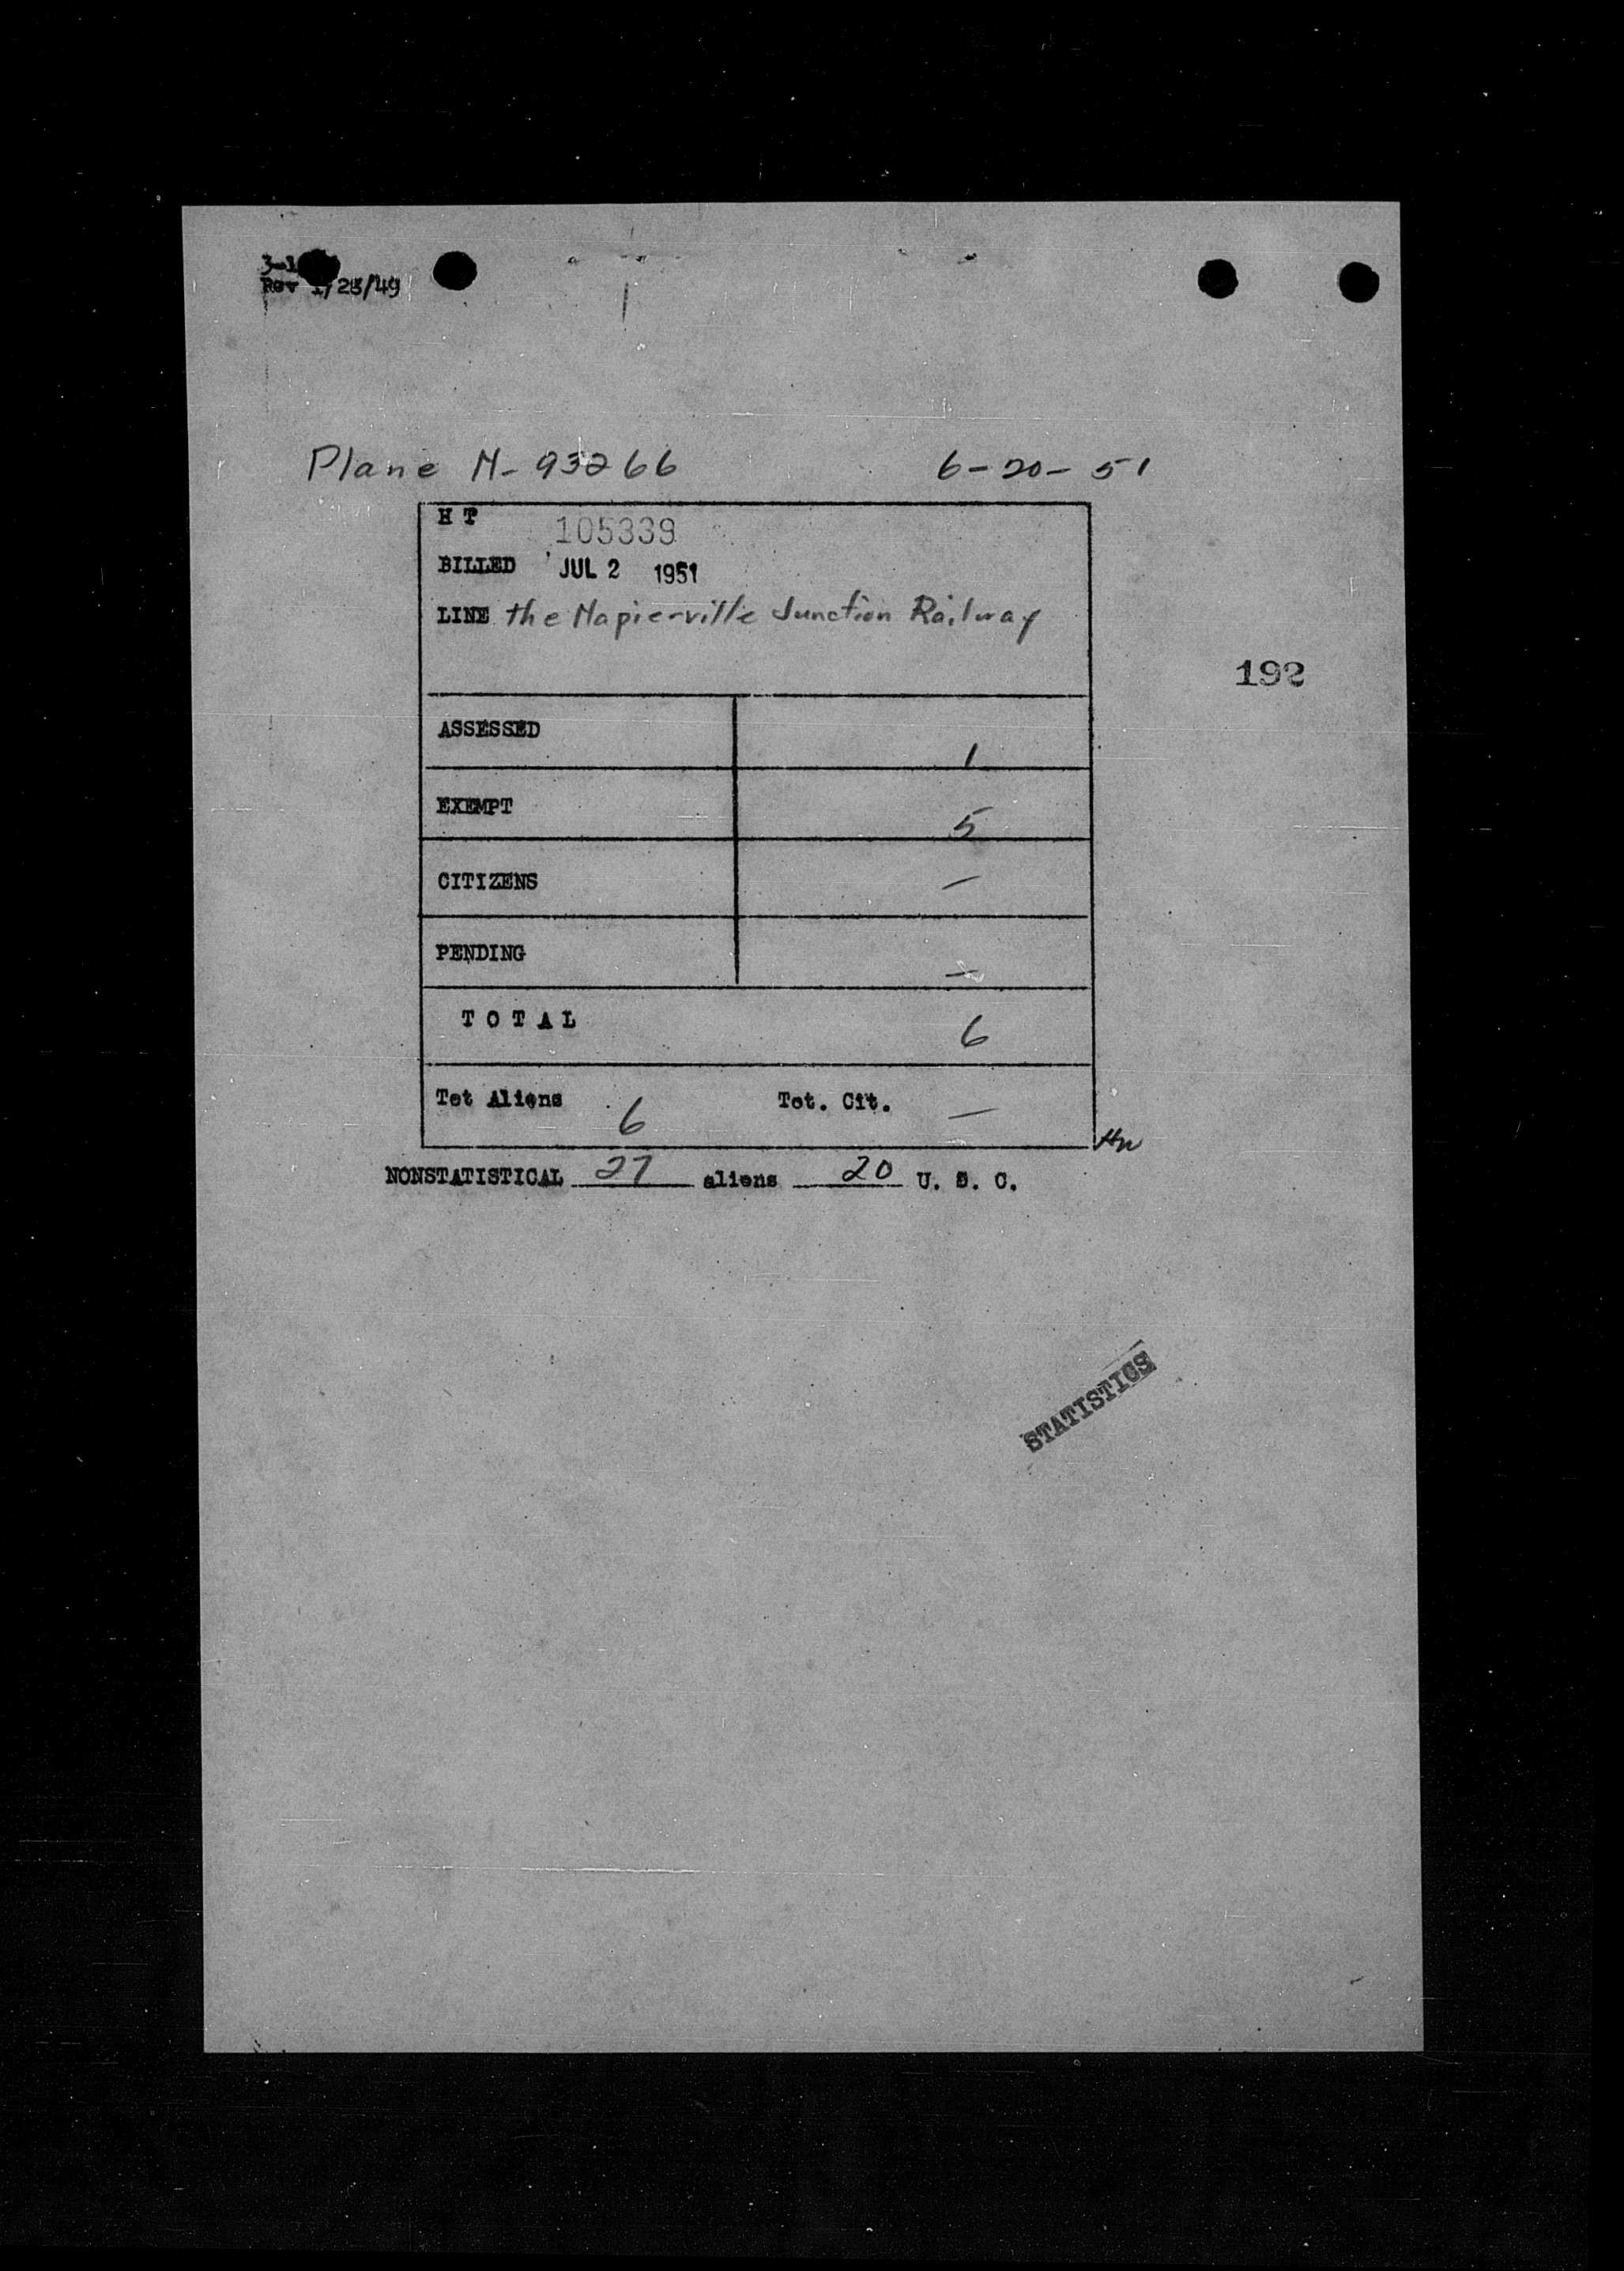 Rev 1/25/49
Plane N-93266 6-20-51
H T 105339
BILLED JUL 2 1951
LINE the Napierville Junction Railway
192
ASSESSED 1
EXEMPT 5
CITIZENS —
PENDING —
TOTAL 6
Tot Aliens 6 Tot. Cit. —
NONSTATISTICAL 27 aliens 20 U. S. C.
STATISTICS